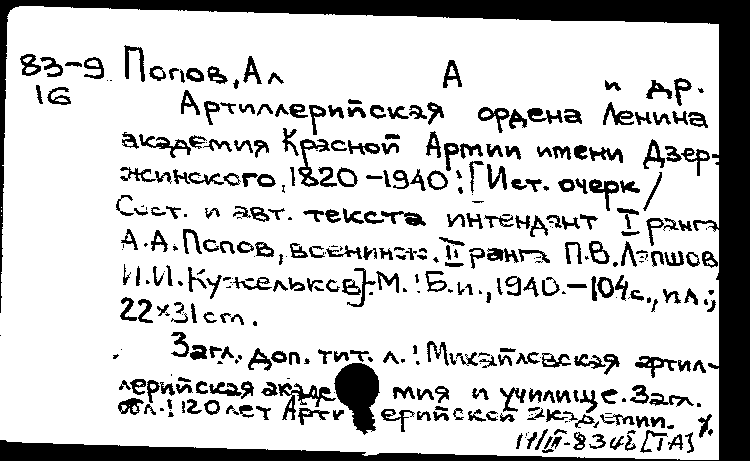 83-9 Попов, Ал А и др.
16 Артиллерийская ордена Ленина
академия Красной Армии имени Дзер-
жинского, 1820-1940: [Ист. очерк /
Сост. и авт. текста интендант I ранга
А.А.Попов, военинж. II ранга П.В.Лапшов,
И.И.Кужельков]. - М.: Б.и., 1940. - 104с., ил.;
22×31см.
Загл. доп. тит. л.: Михайловская артил-
лерийская академия и училище. Загл.
обл.: 120 лет Артиллерийской академии.